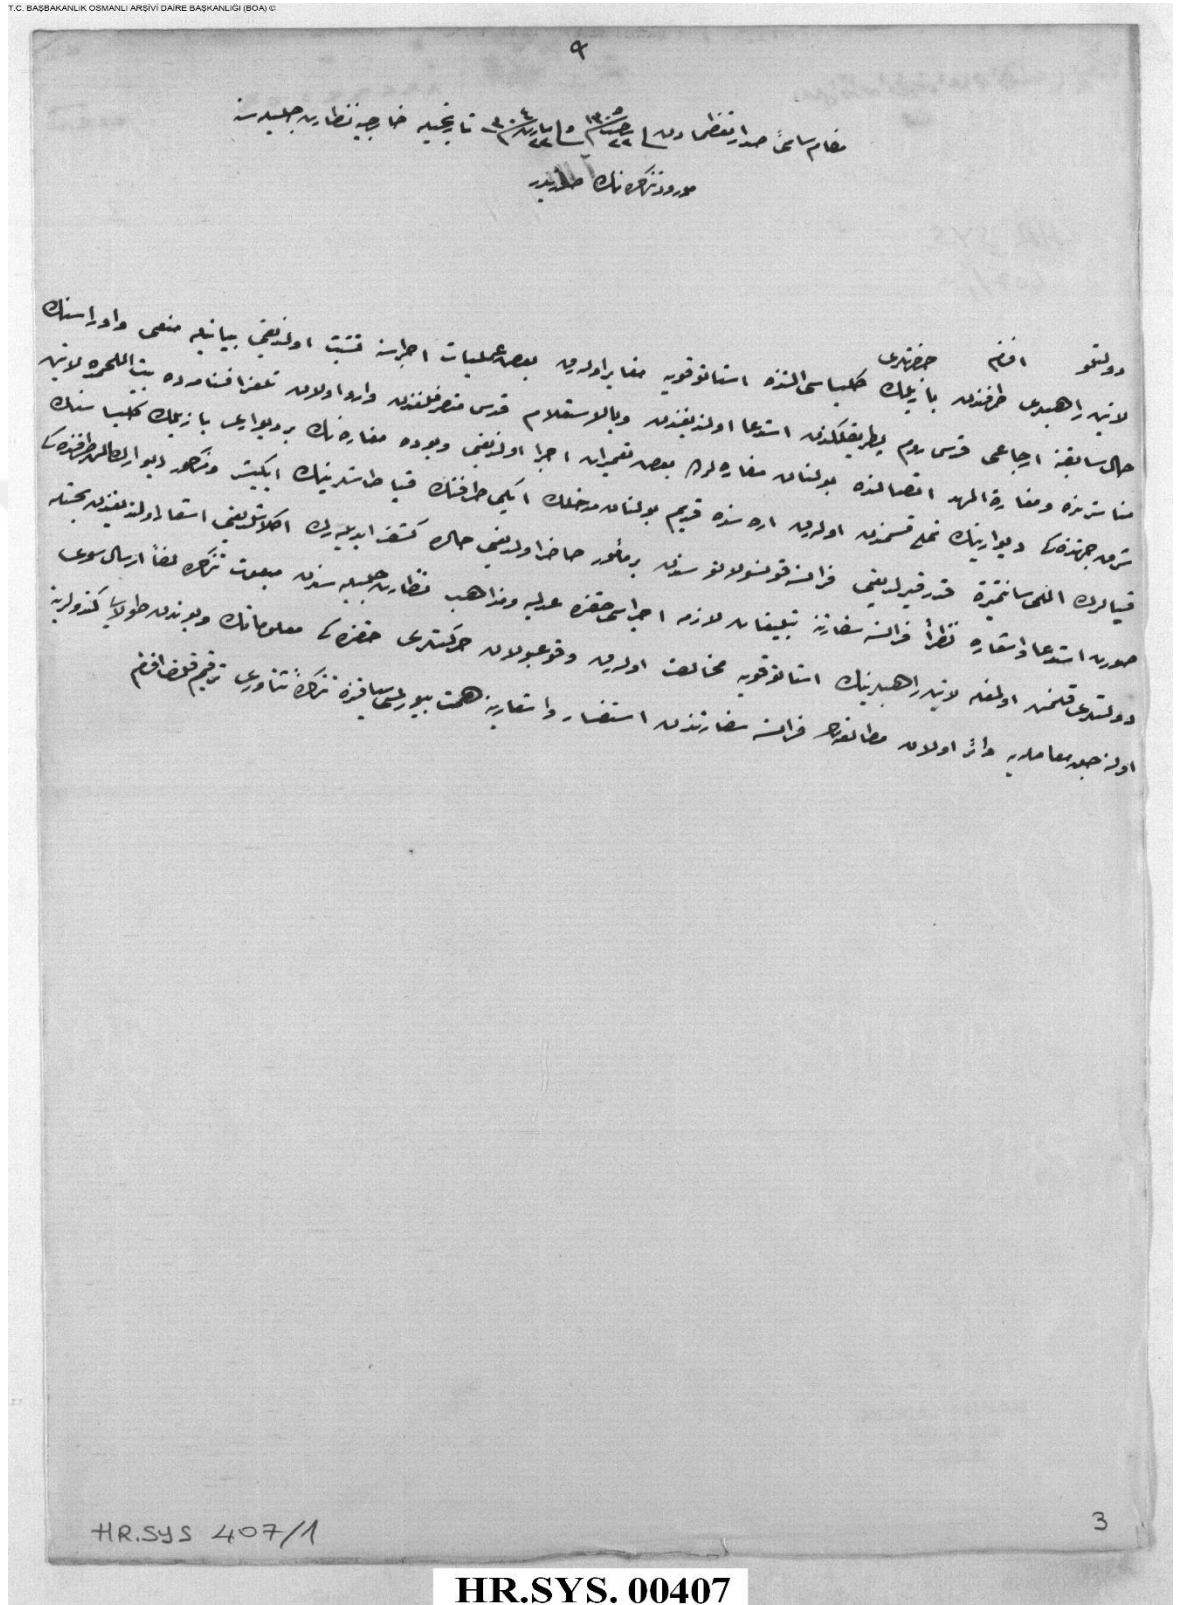 T.C. BAŞBAKANLIK OSMANLI ARŞİVİ DAİRE BAŞKANLIĞI (BOA) ©
٩
مقام سامئ صدارتعظمادن ٢٢ رجب ١٣٠٥ و ٢٣ مارت ١٣٠٤ تاريخيله خارجيه نظارت جليله سنه
مورود تذكره نك صورتيدر
دولتلو افندم حضرتلرى
لاتين راهبلرى طرفندن بازيليك كليساسى التنده استاتوقويه مغاير اولهرق بعض عمليات اجراسنه تشبث اولنديغى بيانيله منعى واوراسنك
حال سابقنه ارجاعى قدس روم پطريقلكندن استدعا اولنديغندن وبالاستعلام قدس متصرفلغندن وارد اولان تلغرافنامه ده بيت اللحمده لاتين
مناسترنده ومغارة المهد اتصالنده بولنان مغاره لرده بعض تعميرات اجرا اولنديغى وبوده مغاره نك بر ديوارى بازيليك كليساسنك
شرق جهتنده كى ديوارينك تملى قسمندن اولهرق اره سنده قديم بولنان مدخلك ايكى طرفنك قيا طاشلرينك ايكيشر ومذكور ديوارك طرفنده كى
قيالرك اللى سانتيمتره قدر قيرلديغى فرانسه قونسولاتوسندن بر مأمور حاضر اولديغى حالده كشف ايديله رك اكلاشلديغى اشعار اولنديغندن بحثله
صورت استدعا واشعاره نظراً فرانسه سفارتنه تبليغات لازمه اجراسى حقنده عدليه ومذاهب نظارت جليله سندن مبعوث تذكره لفاً ارسال سوى
دولتلرى قلنمش اولمغله لاتين راهبلرينك استاتوقويه مخالف اولهرق وقوعبولان حركتلرى حقنده كى معلوماتك وبوندن طولايى كندولرينه
اولنه جق معامله يه دائر اولان مطالعه نك فرانسه سفارتندن استفسار واشعارينه همت بيورلمسى سياقنده تذكرۀ ثناورى ترقيم قلندى افندم
HR.SYS 407/1
3
HR.SYS. 00407